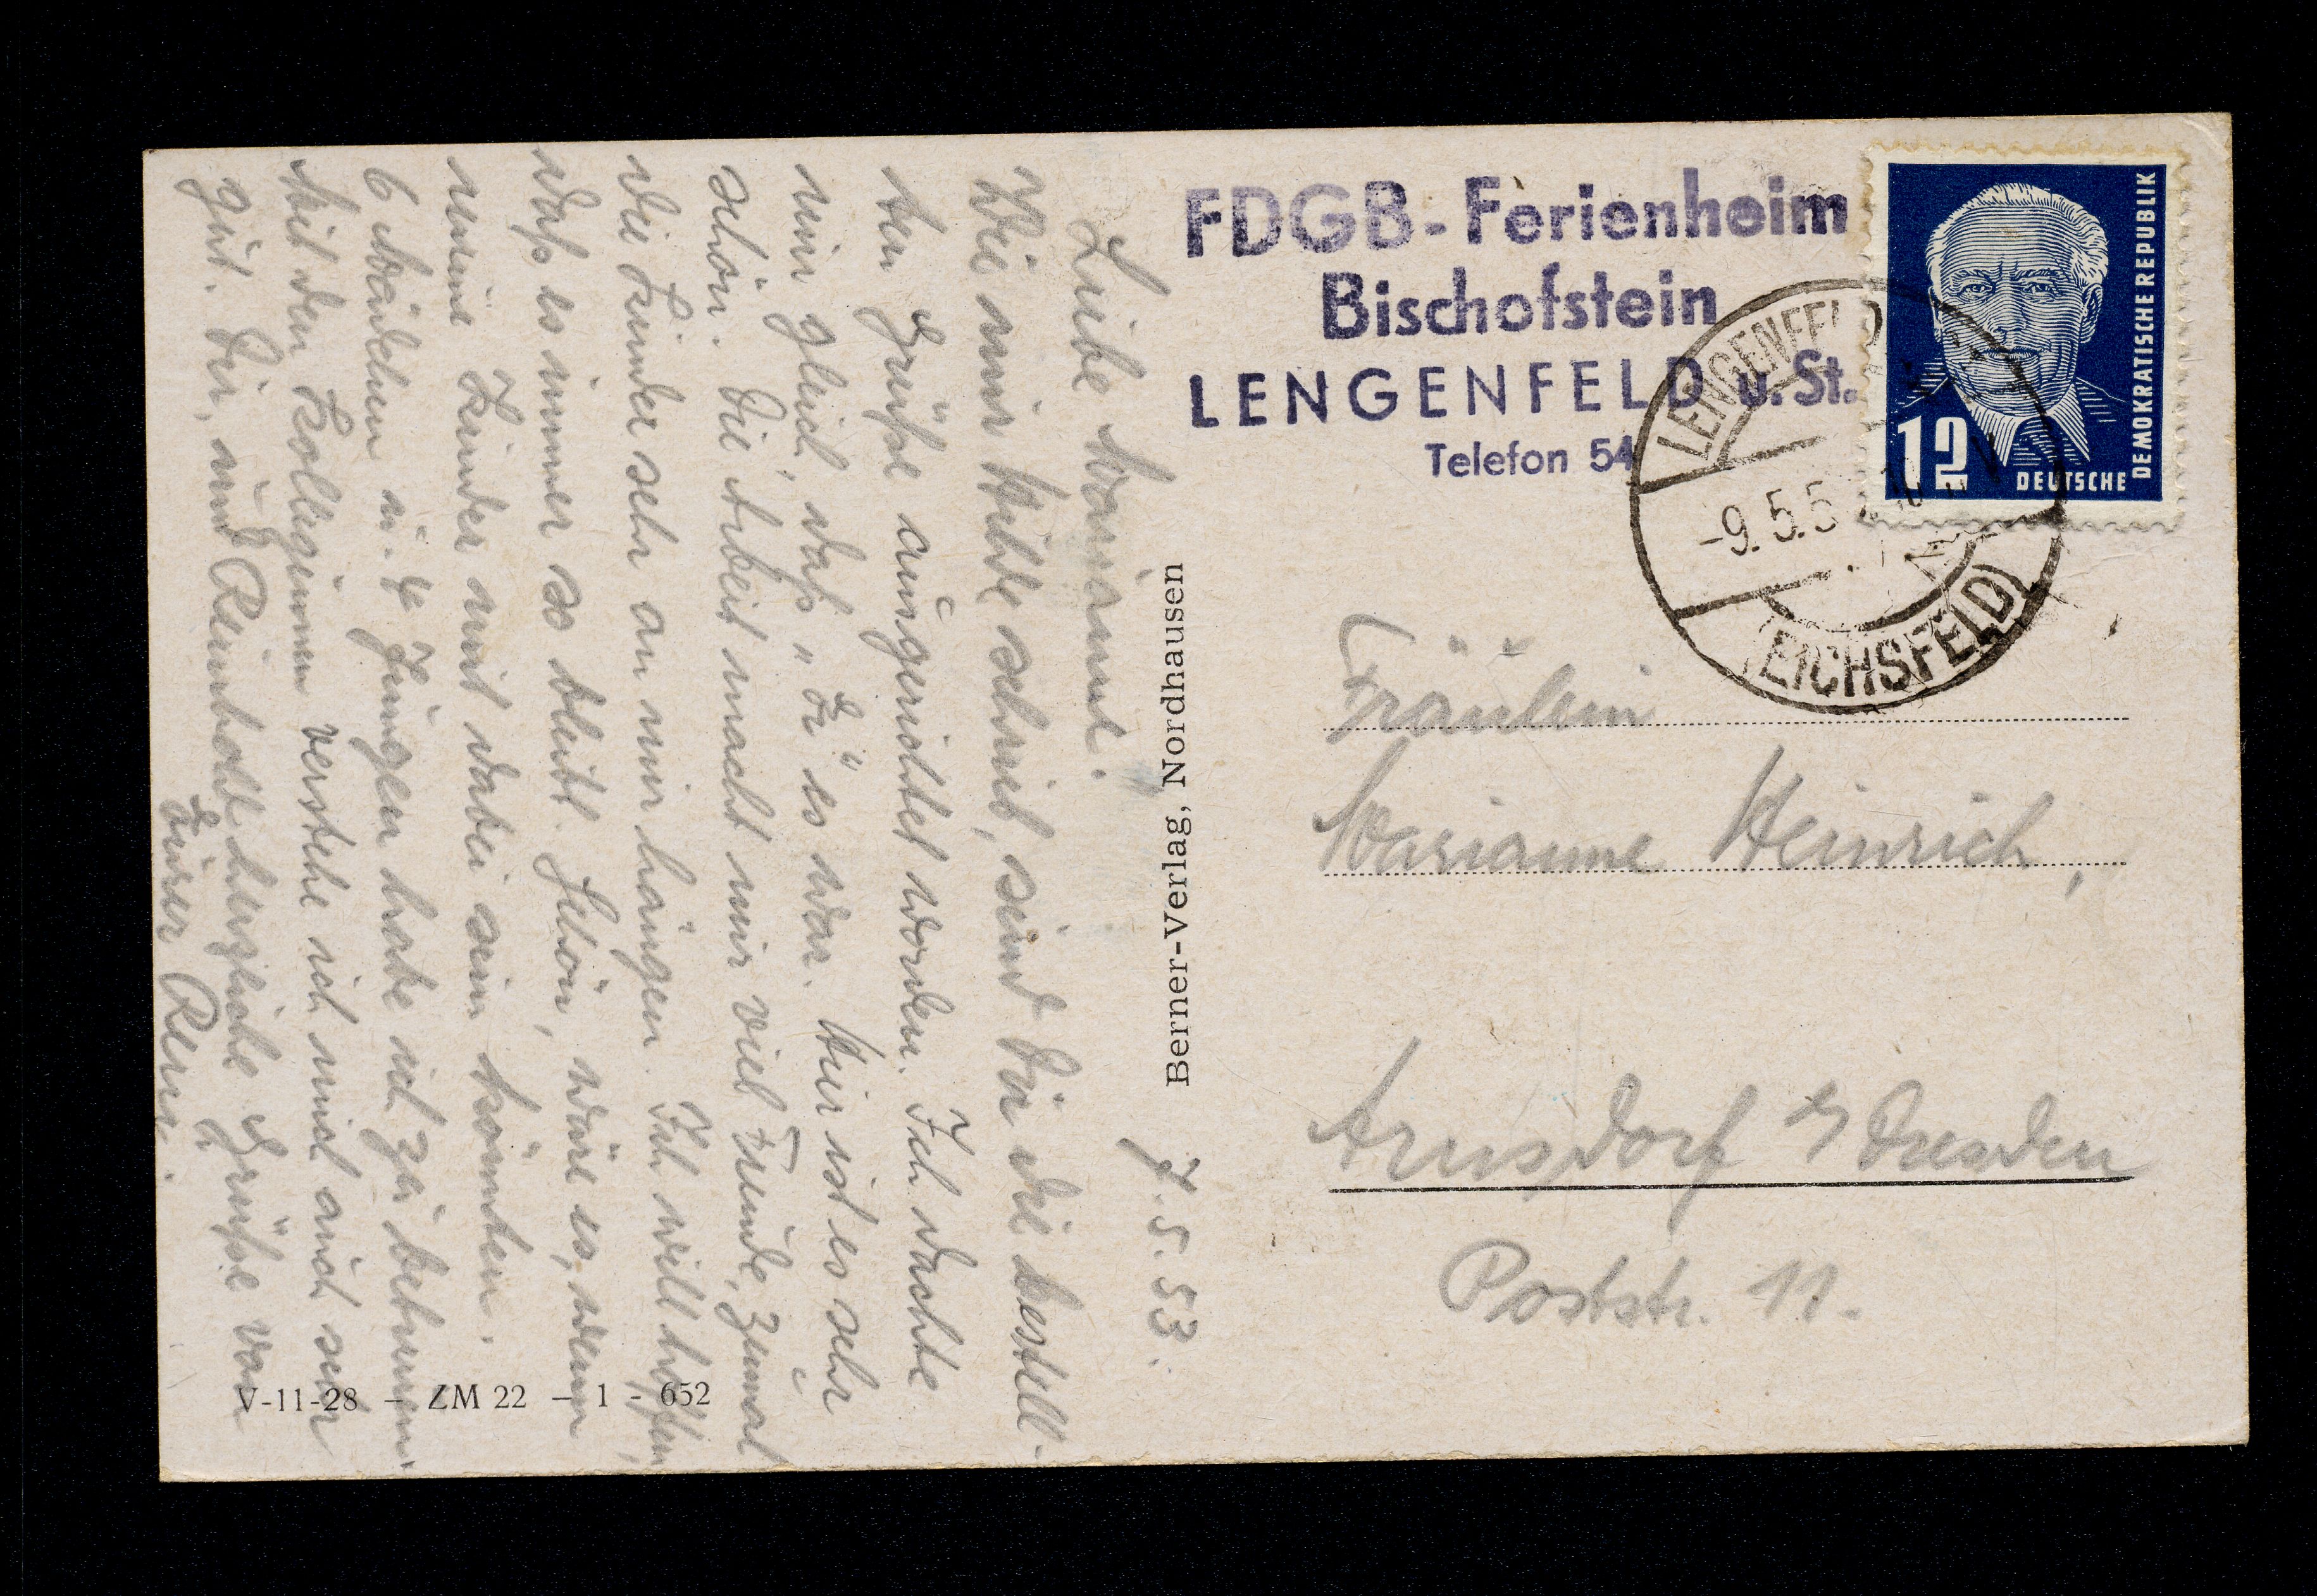 7. 5. 53.
Liebe Marianne.
Wie mir Hilde schreibt, sind Dir die bestell-
ten Grüße ausgerichtet worden. Ich dachte
mir gleich, daß „Er“ es war. Hier ist es sehr
schön. Die Arbeit macht mir viel Freude, zumal
die Kinder sehr an mir hängen. Ich will hoffen,
daß es immer so bleibt. Schön, wäre es, wenn
meine Kinder mit dabei sein könnten.
6 Mädchen u. 4 Jungen habe ich zu betreuen.
Mit den Kolleginnen verstehe ich mich auch sehr
gut. Dir, und Reinhold herzliche Grüße von
Eurer
FDGB-Ferienheim
Bischofstein
LENGENFELD u. St.
Telefon 54
12
DEUTSCHE
DEMOKRATISCHE REPUBLIK
LENGENFELD
-9.5.5
(EICHSFELD)
Fräulein
Marianne Heinrich,
Arnsdorf b/ Dresden
Poststr. 11.
Berner-Verlag, Nordhausen
V-11-28 – ZM 22 – 1 - 652